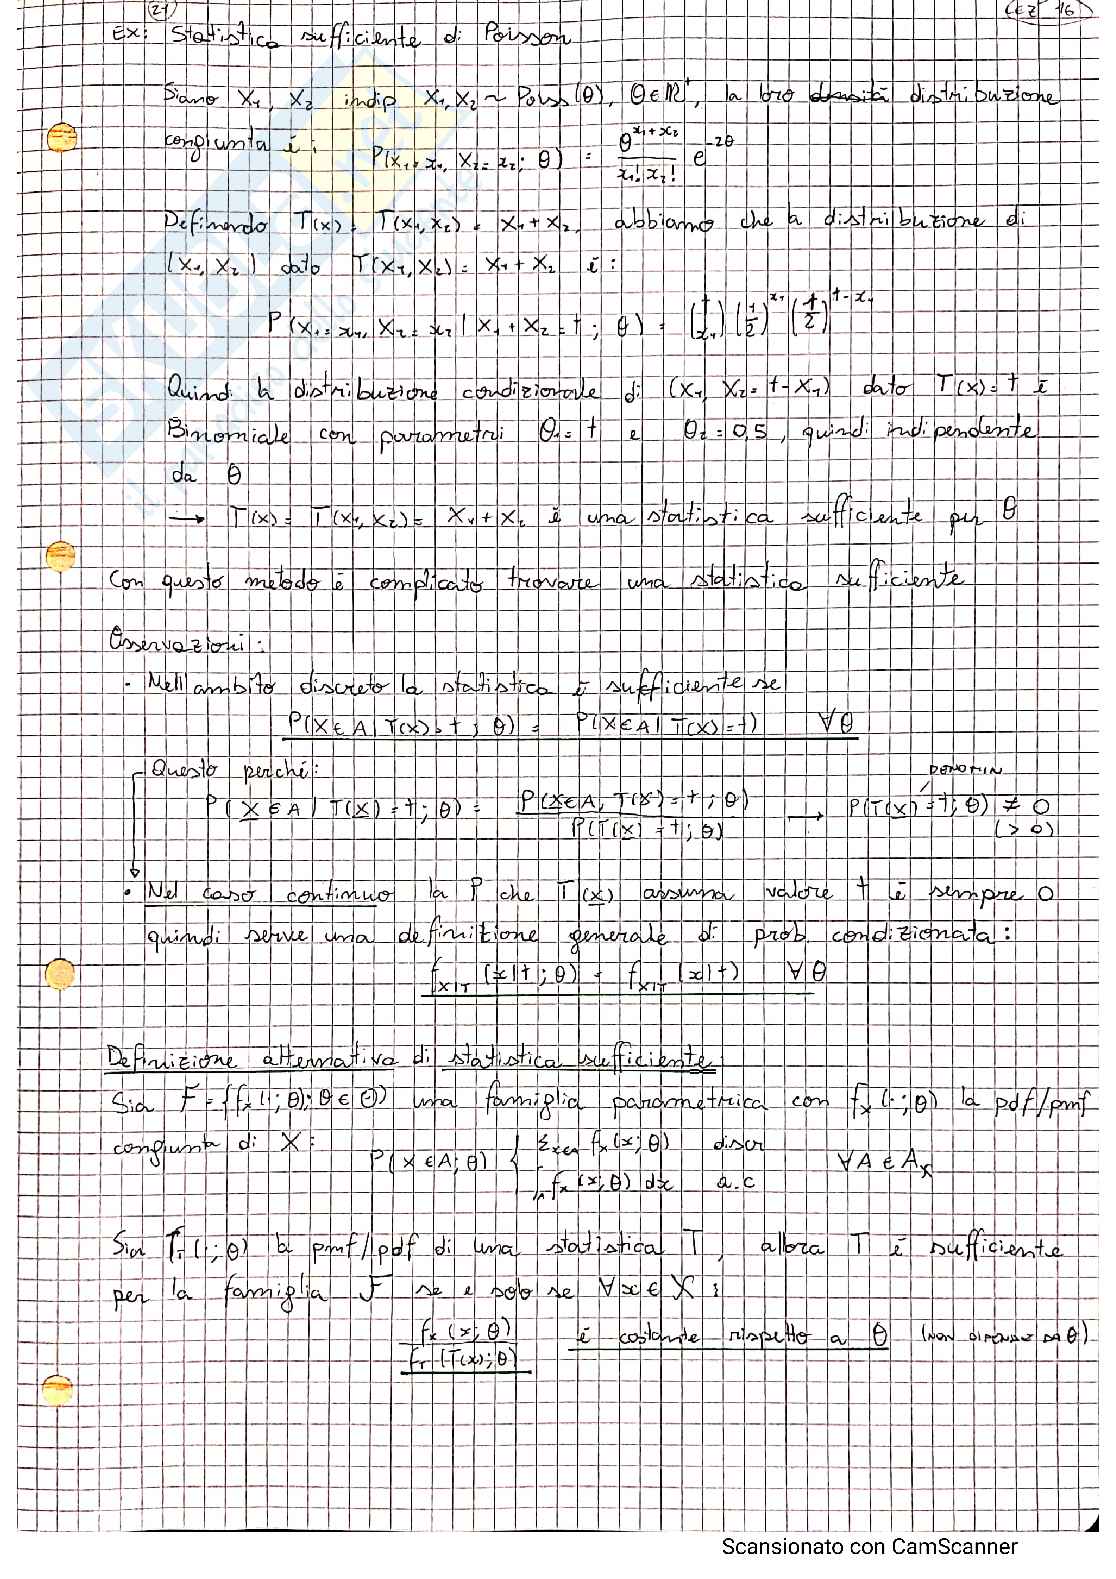 21
LEZ 16
Ex: Statistica sufficiente di Poisson
Siano X₁, X₂ indip X₁, X₂ ~ Poiss(θ), θ ∈ ℝ⁺, la loro densità distribuzione
congiunta è: P(X₁=x₁, X₂=x₂; θ) = θ^(x₁+x₂) / (x₁! x₂!) e^(-2θ)
Definendo T(x) = T(x₁, x₂) = X₁ + X₂, abbiamo che la distribuzione di
(X₁, X₂) dato T(X₁, X₂) = X₁ + X₂ è:
P(X₁=x₁, X₂=x₂ | X₁+X₂=t; θ) = (t x₁) (1/2)^(x₁) (1/2)^(t-x₁)
Quindi la distribuzione condizionale di (X₁, X₂=t-X₁) dato T(x)=t è
Binomiale con parametri θ₁=t e θ₂=0,5, quindi indipendente
da θ
→ T(x) = T(x₁, x₂) = X₁+X₂ è una statistica sufficiente per θ
Con questo metodo è complicato trovare una statistica sufficiente
Osservazioni:
· Nell'ambito discreto la statistica è sufficiente se
P(X∈A | T(x)=t; θ) = P(X∈A | T(x)=t) ∀θ
Questo perché:
DENOMIN
P(X∈A | T(X)=t; θ) = P(X∈A, T(X)=t; θ) / P(T(X)=t; θ) → P(T(X)=t; θ) ≠ 0
(>0)
· Nel caso continuo la P che T(x) assuma valore t è sempre 0
quindi serve una definizione generale di prob condizionata:
f_X|T (x|t; θ) = f_X|T (x|t) ∀θ
Definizione alternativa di statistica sufficiente
Sia F = {fₓ(·; θ); θ ∈ Θ} una famiglia parametrica con fₓ(·; θ) la pdf/pmf
congiunta di X: P(X∈A; θ) { Σ_x∈A fₓ(x; θ) discr ∀A ∈ Aₓ
∫_A fₓ(x; θ) dx a.c
Sia f_T(·; θ) la pmf/pdf di una statistica T, allora T è sufficiente
per la famiglia F se e solo se ∀x ∈ X:
fₓ(x; θ) / f_T(T(x); θ) è costante rispetto a θ (NON DIPENDE DA θ)
Scansionato con CamScanner